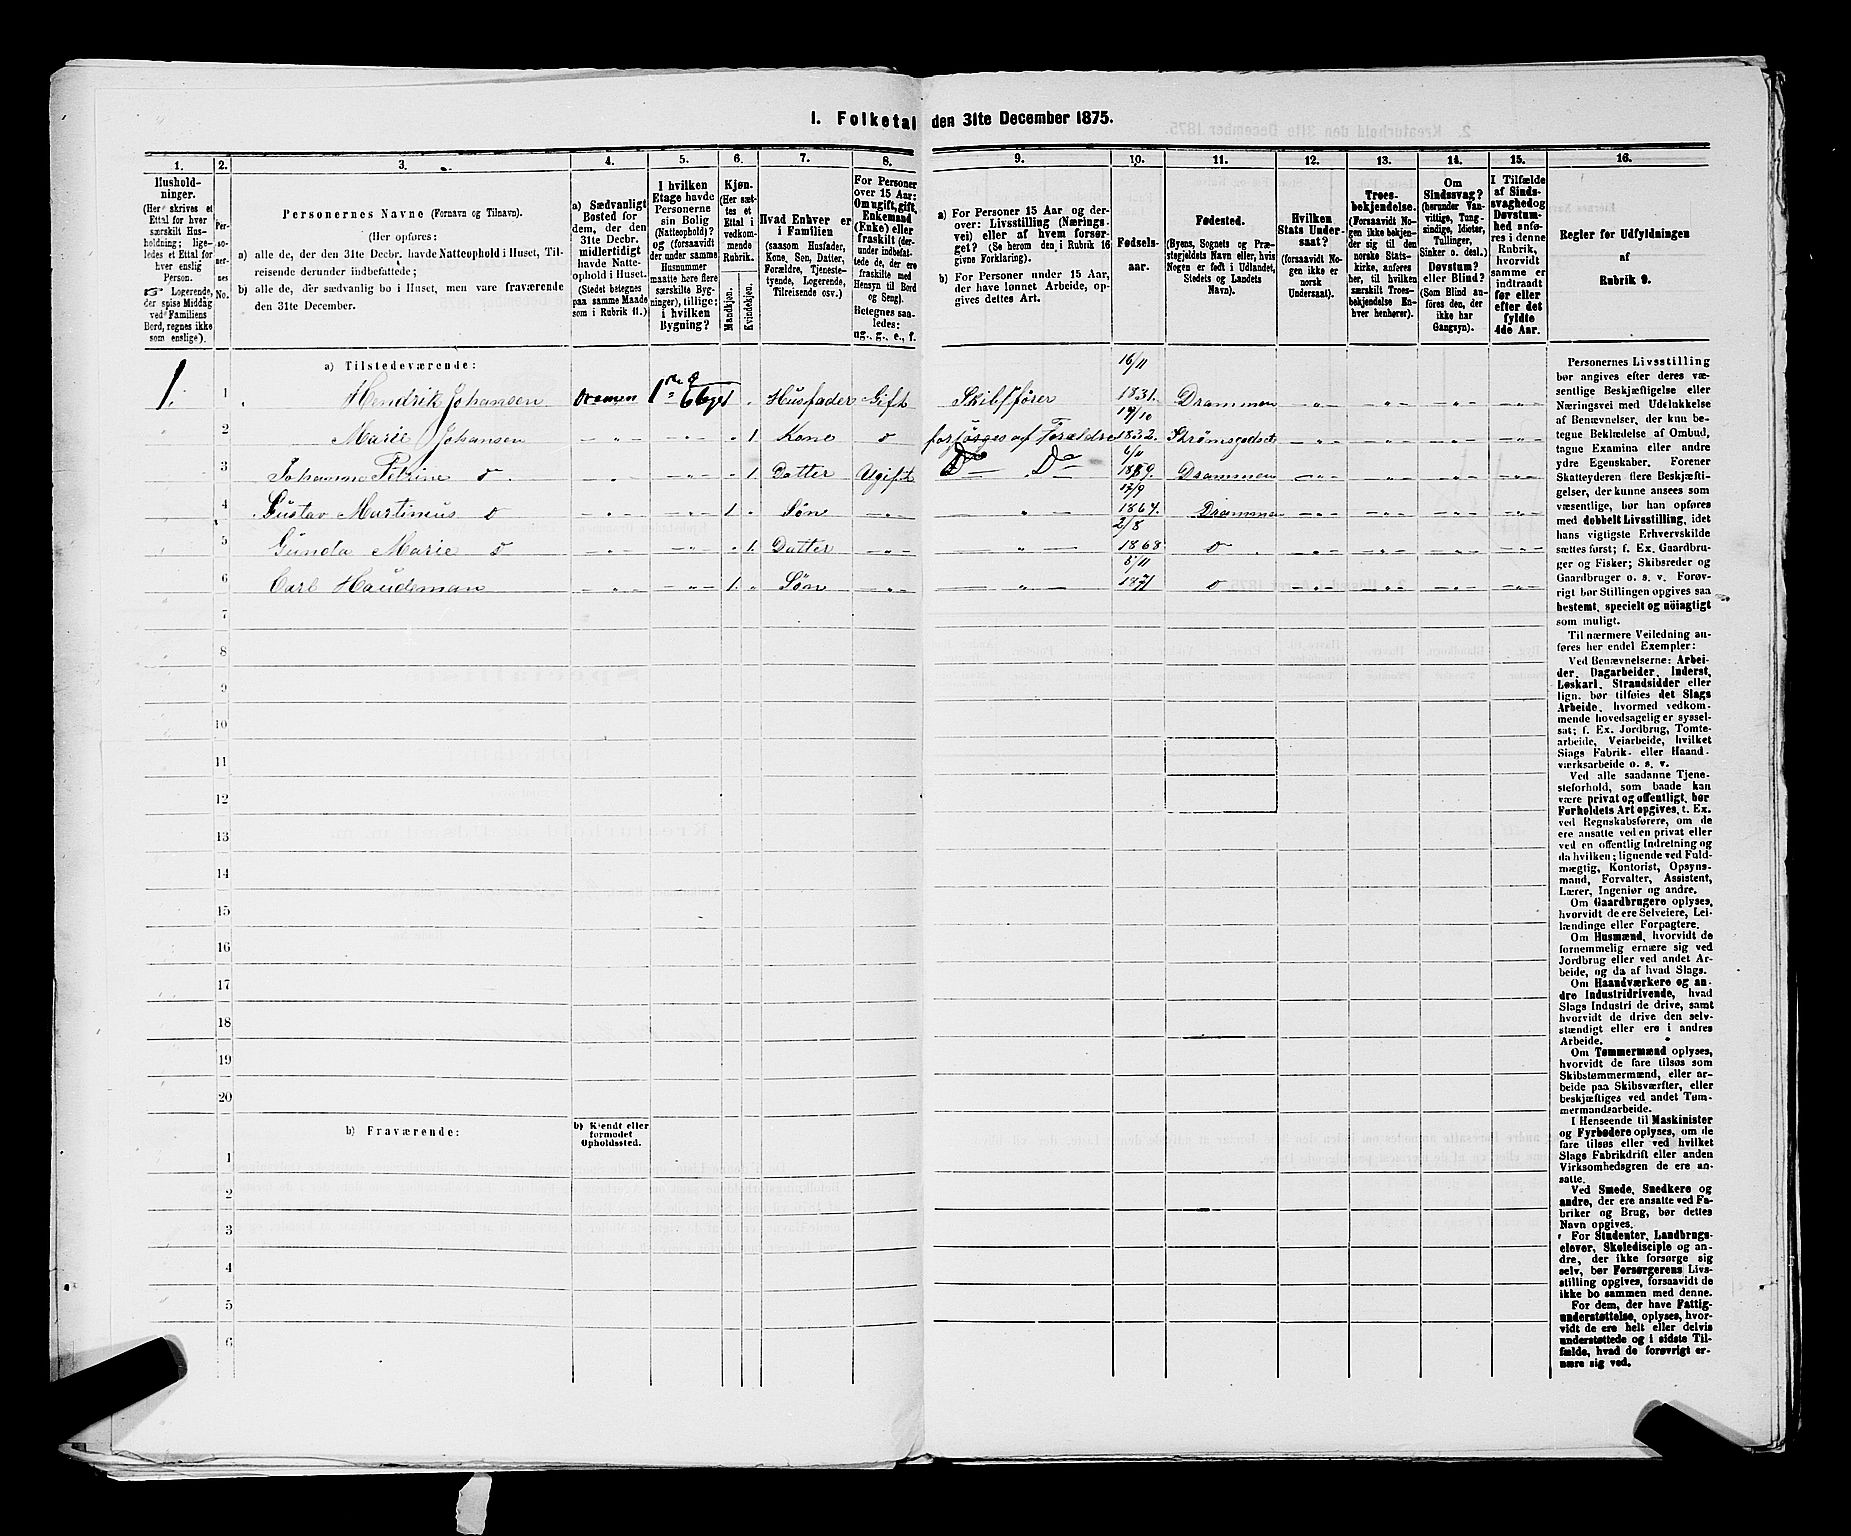 I. Folketal den 31te December 1875.
1. 2. 3. 4. 5. 6. 7. 8. 9. 10. 11. 12. 13. 14. 15. 16.
Hushold-
ninger.
(Her skrives et
Ettal for hver
særskilt Hus-
holdning; lige-
ledes et Ettal for
hver enslig
Person.
Logerende,
der spise Middag
ved Familiens
Bord, regnes ikke
som enslige).
Per-
so-
ner-
nes
No.
Personernes Navne (Fornavn og Tilnavn).
(Her opføres:
a) alle de, der den 31te Decbr. havde Natteophold i Huset, Til-
reisende derunder indbefattede;
b) alle de, der sædvanlig bo i Huset, men vare fraværende
den 31te December.
a) Sædvanligt
Bosted for
dem, der den
31te Decbr.
midlertidigt
havde Natte-
ophold i Huset.
(Stedet betegnes
paa samme Maade
som i Rubrik 11.)
I hvilken
Etage havde
Personerne
sin Bolig
(Natteophold)?
og (forsaavidt
der under samme
Husnummer
maatte høre flere
særskilte Byg-
ninger), tillige:
i hvilken
Bygning?
Kjøn.
(Her sæt-
tes et
Ettal i
vedkom-
mende
Rubrik.
Mandkjøn.
Kvindekjøn.
Hvad Enhver er
i Familien
(saasom Husfader,
Kone, Søn, Datter,
Forældre, Tjeneste-
tyende, Logerende,
Tilreisende osv.)
For Personer
over 15 Aar:
Om ugift, gift,
Enkemand
(Enke) eller
fraskilt (der-
under indbefat-
tede de, der ere
fraskilte med
Hensyn til Bord
og Seng).
Betegnes saa-
ledes:
ug., g., e., f.
a) For Personer 15 Aar og der-
over: Livsstilling (Nærings-
vei) eller af hvem forsør-
get? (Se herom den i Rubrik 16
givne Forklaring).
b) For Personer under 15 Aar,
der have lønnet Arbeide, op-
gives dettes Art.
Fødsels-
aar.
Fødested.
(Byens, Sognets og Præ-
stegjeldets Navn eller, hvis
Nogen er født i Udlandet,
Stedets og Landets
Navn).
Hvilken
Stats Under-
saat?
(forsaavidt No-
gen ikke er
norsk
Undersaat).
Troes-
bekjendelse.
(Forsaavidt No-
gen ikke bekjen-
der sig til den
norske Stats-
kirke, anføres
her, til hvilken
særskilt Troes-
bekjendelse En-
hver henhører).
Om
Sindssvag?
(herunder Van-
vittige, Tung-
sindige, Idioter,
Tullinger,
Sinker o. desl.)
Døvstum?
eller Blind?
(Som Blind an-
føres den, der
ikke har
Gangsyn).
I Tilfælde
af Sinds-
svaghed og
Døvstum-
hed anfø-
res i denne
Rubrik,
hvorvidt
samme er
indtraadt
før eller
efter det
fyldte
4de Aar.
Regler for Udfyldningen
af
Rubrik 9.
a) Tilstedeværende:
1. 1 Hendrik Johansen Dramen 1ste Etage Husfader Gift Skibsfører 16/11 1831. Drammen
2 Marie Johansen 1 Kone d forsørges af Forældre 14/10 1832. Strømsgodset
3 Johanne Petrine d 1 Datter Ugift Do Do 6/11 1859. Drammen
4 Gustav Martinius d 1 Søn 12/9 1864. Drammen
5 Gunda Marie d 1 Datter 2/8 1868 d
6 Carl Haudeman 1 Søn 5/11 1871 d
7
8
9
10
11
12
13
14
15
16
17
18
19
20
b) Fraværende:
b) Kjendt eller
formodet
Opholdssted.
1
2
3
4
5
6
Personernes Livsstilling
bør angives efter deres væ-
sentlige Beskjæftigelse eller
Næringsvei med Udelukkelse
af Benævnelser, der kun be-
tegne Beklædelse af Ombud,
tagne Examina eller andre
ydre Egenskaber. Forener
Skatteyderen flere Beskjæfti-
gelser, der kunne ansees som
væsentlige, bør han opføres
med dobbelt Livsstilling, idet
hans vigtigste Erhvervskilde
sættes først; f. Ex. Gaardbru-
ger og Fisker; Skibsreder og
Gaardbruger o. s. v. Forøv-
rigt bør Stillingen opgives saa
bestemt, specielt og nöiagtigt
som muligt.
Til nærmere Veiledning an-
føres her endel Exempler:
Ved Benævnelserne: Arbei-
der, Dagarbeider, Inderst,
Løskarl, Strandsidder eller
lign. bør tilføies det Slags
Arbeide, hvormed vedkom-
mende hovedsagelig er syssel-
sat; f. Ex. Jordbrug, Tomte-
arbeide, Veiarbeide, hvilket
Slags Fabrik- eller Haand-
værksarbeide o. s. v.
Ved alle saadanne Tjene-
steforhold, som baade kan
være privat og offentligt, bør
Forholdets Art opgives, t. Ex.
ved Regnskabsførere, om de
ere ansatte ved en privat eller
ved en offentlig Indretning og
da hvilken; lignende ved Fuld-
mægtig, Kontorist, Opsyns-
mand, Forvalter, Assistent,
Lærer, Ingeniør og andre.
Om Gaardbrugere oplyses,
hvorvidt de ere Selveiere, Lei-
lændinge eller Forpagtere.
Om Husmænd, hvorvidt de
fornemmelig ernære sig ved
Jordbrug eller ved andet Ar-
beide, og da af hvad Slags.
Om Haandværkere og an-
dre Industridrivende, hvad
Slags Industri de drive, samt
hvorvidt de drive den selv-
stændigt eller ere i andres
Arbeide.
Om Tømmermænd oplyses,
hvorvidt de fare tilsøs som
Skibstømmermænd, eller ar-
beide paa Skibsværfter, eller
beskjæftiges ved andet Tøm-
mermandsarbeide.
I Henseende til Maskinister
og Fyrbødere oplyses, om de
fare tilsøs eller ved hvilket
Slags Fabrikdrift eller anden
Virksomhedsgren de ere an-
satte.
Ved Smede, Snedkere og
andre, der ere ansatte ved Fa-
briker og Brug, bør dettes
Navn opgives.
For Studenter, Landbrugs-
elever, Skoledisciple og an-
dre, der ikke forsørge sig
selv, bør Forsørgerens Livs-
stilling opgives, forsaavidt de
ikke bo sammen med denne.
For dem, der have Fattig-
understøttelse, oplyses, hvor-
vidt de ere helt eller delvis
understøttede og i sidste Til-
fælde, hvad de forøvrigt er-
nære sig ved.